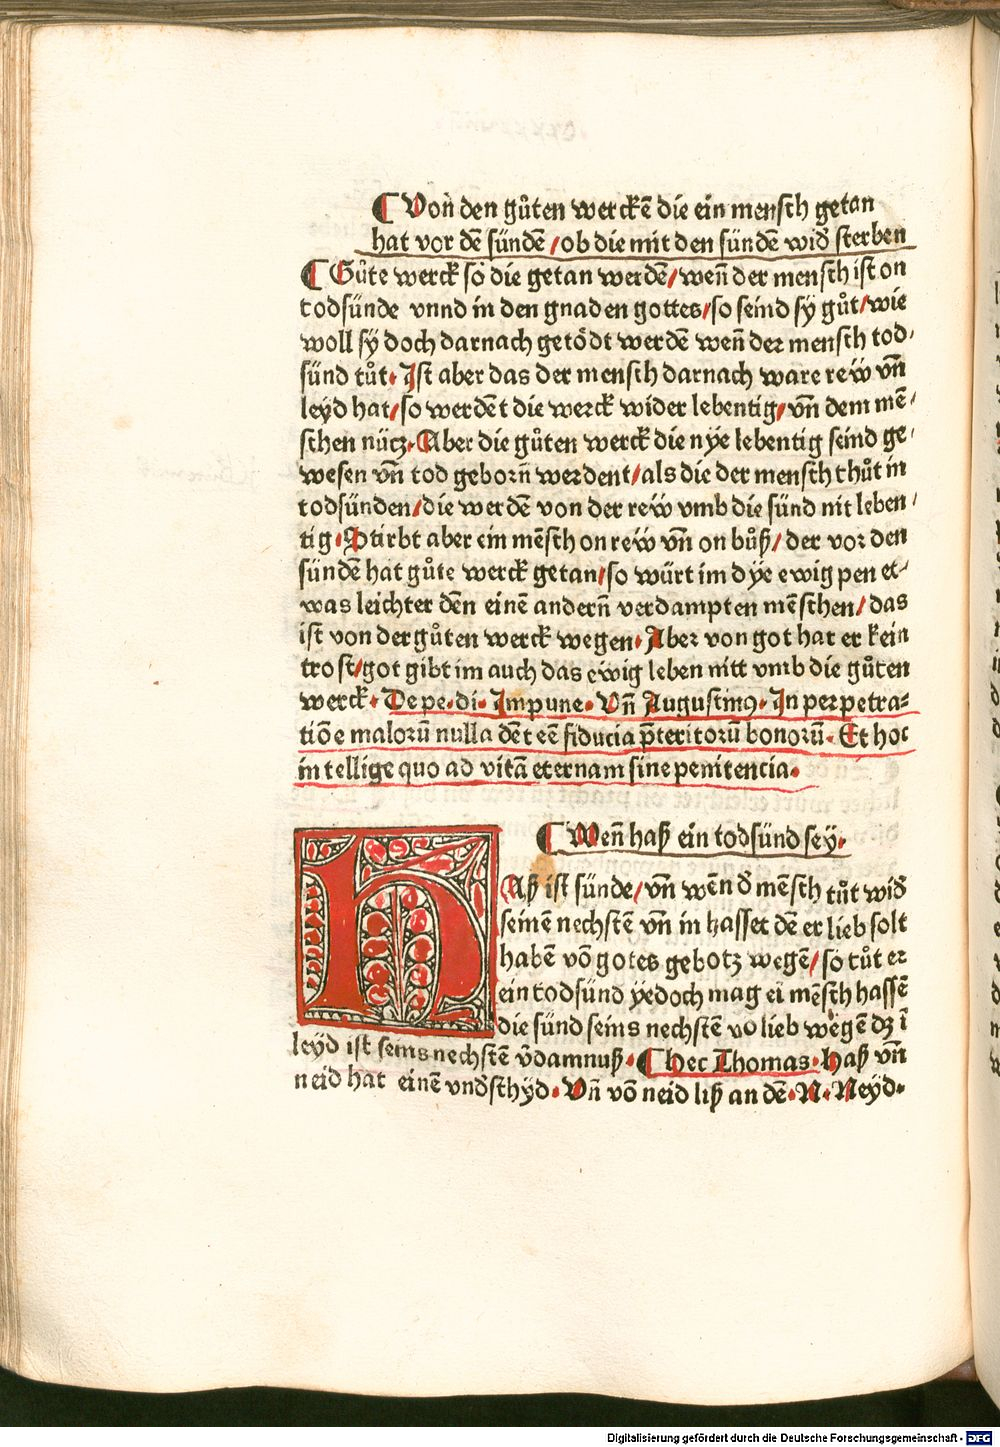 ¶ Von den gůten werckẽ die ein mensch getan
hat vor dẽ sündẽ / ob die mit den sündẽ wid̕ sterben
¶ Gůte werck so die getan werdẽ / weñ der mensch ist on
todsünde vnnd in den gnaden gottes / so seind sy gůt / wie
woll sÿ doch darnach getödt werdẽ weñ der mensch tod⸗
sünd tůt. Ist aber das der mensch darnach ware rew̋ vñ
leÿd hat / so werdẽt die werck wider lebentig / vñ dem mẽ⸗
schen nücz. Aber die gůten werck die nÿe lebentig seind ge⸗
wesen vñ tod geborñ werdent / als die der mensch thůt in
todsünden / die werdẽ von der rew̋ vmb die sünd nit leben⸗
tig. Stirbt aber ein mẽsch on rew̋ vñ on bůß / der vor den
sündẽ hat gůte werck getan / so würt im dÿe ewig pen et⸗
was leichter dẽn einẽ anderñ verdampten mẽschen / das
ist von der gůten werck wegen. Aber von got hat er kein
trost / got gibt im auch das ewig leben nitt vmb die gůten
werck. De pe. di. Impune. Vñ Augustinꝰ. In perpetra⸗
tiõe malorũ nulla dẽt eẽ fiducia p̃teritorũ bonorũ. Et hoc
intellige quo ad vitã eternam sine penitencia.
¶ Weñ haß ein todsünd seÿ.
HAß ist sünde / vñ wẽn d̕ mẽsch tůt wid̕
seinẽ nechstẽ vñ in hasset dẽ er lieb solt
habẽ võ gotes gebotz wegẽ / so tůt er
ein todsünd ÿedoch mag ei mẽsch hassẽ
die sünd seins nechstẽ vo lieb wegẽ dz ĩ
leÿd ist seins nechstẽ v̕damnuß. ¶ hec Thomas. haß vñ
neid hat einẽ vnd̕schÿd. Vñ võ neid liß an dẽ. N. Neÿd.
Digitalisierung gefördert durch die Deutsche Forschungsgemeinschaft - DFG